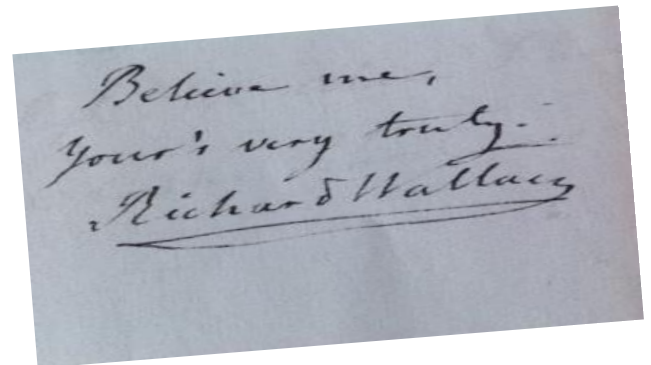 Believe me,
Your's very truly.
Richard Wallace